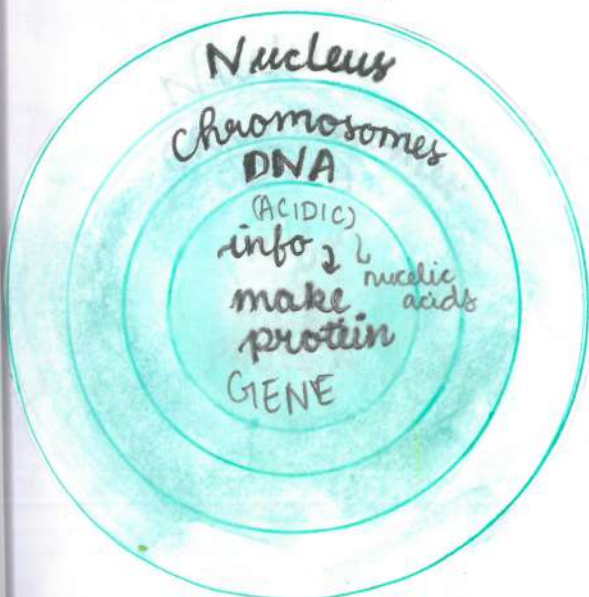 Nucleus
Chromosomes
DNA
(ACIDIC)
info
nucelic
acids
make
protein
GENE